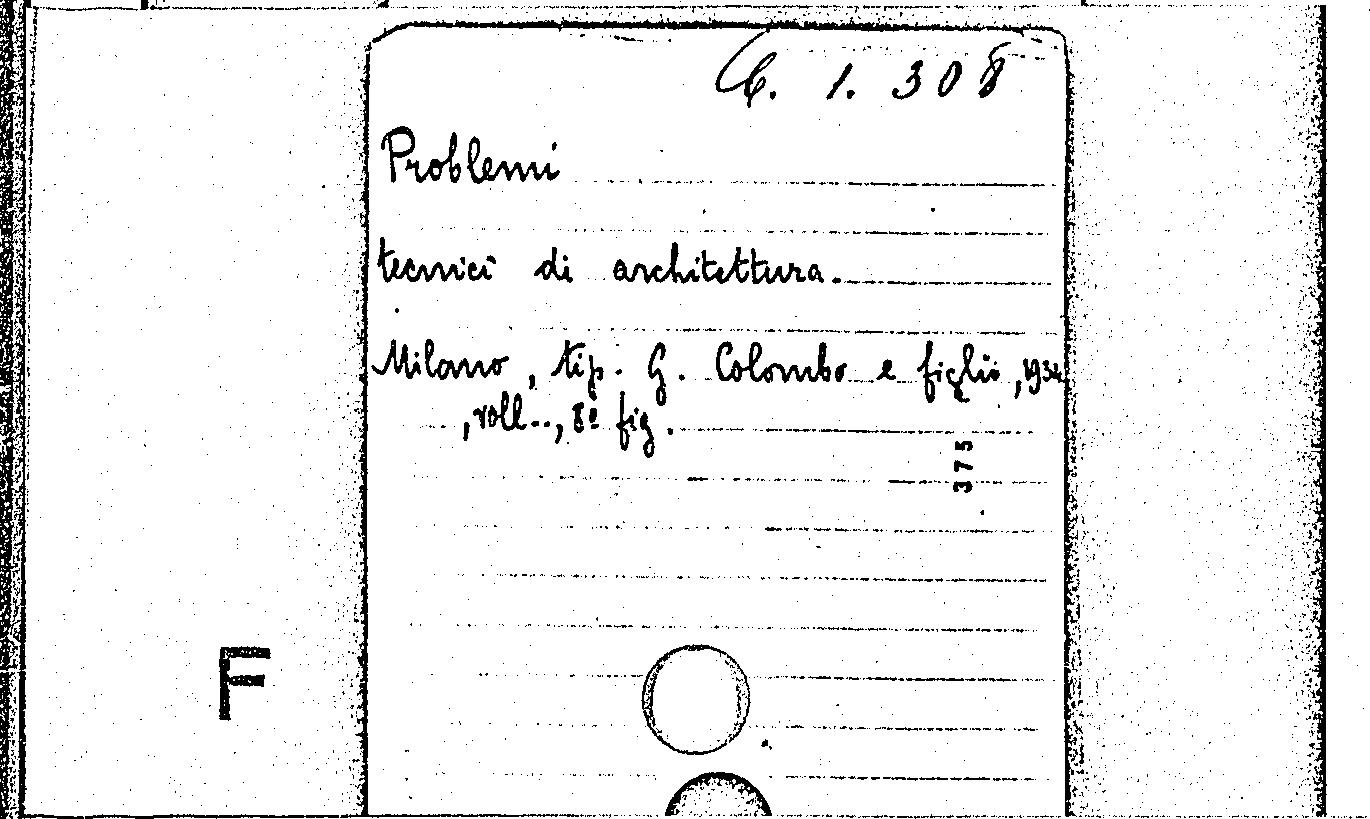 6. 1. 308
Problemi
tecnici di architettura.
Milano, tip. G. Colombo e figli, 1934
, voll.., 8º fig.
375
F